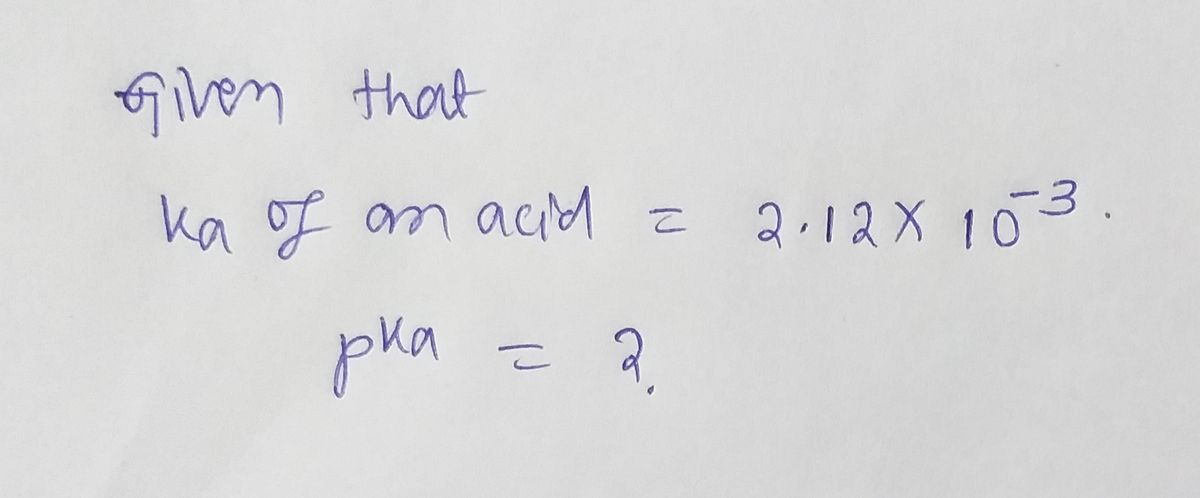 Given that
ka of an acid = 2.12 x 10^-3.
pka = ?